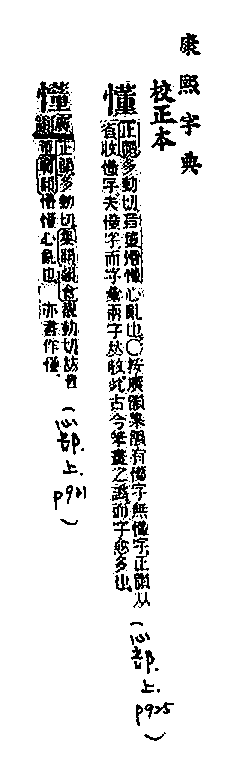 康熙字典
校正本
懂
正韻多動切音董懵懂心亂也〇按廣韻集韻有懂字無懂字正韻从
省收懂字去懂字而字彙兩字𠀤收此古今筆畫之譌而字愈多也
(心部.上.P925)
正韻多動切集韻
懵懂心亂也 亦書作
(心部.上.P921)